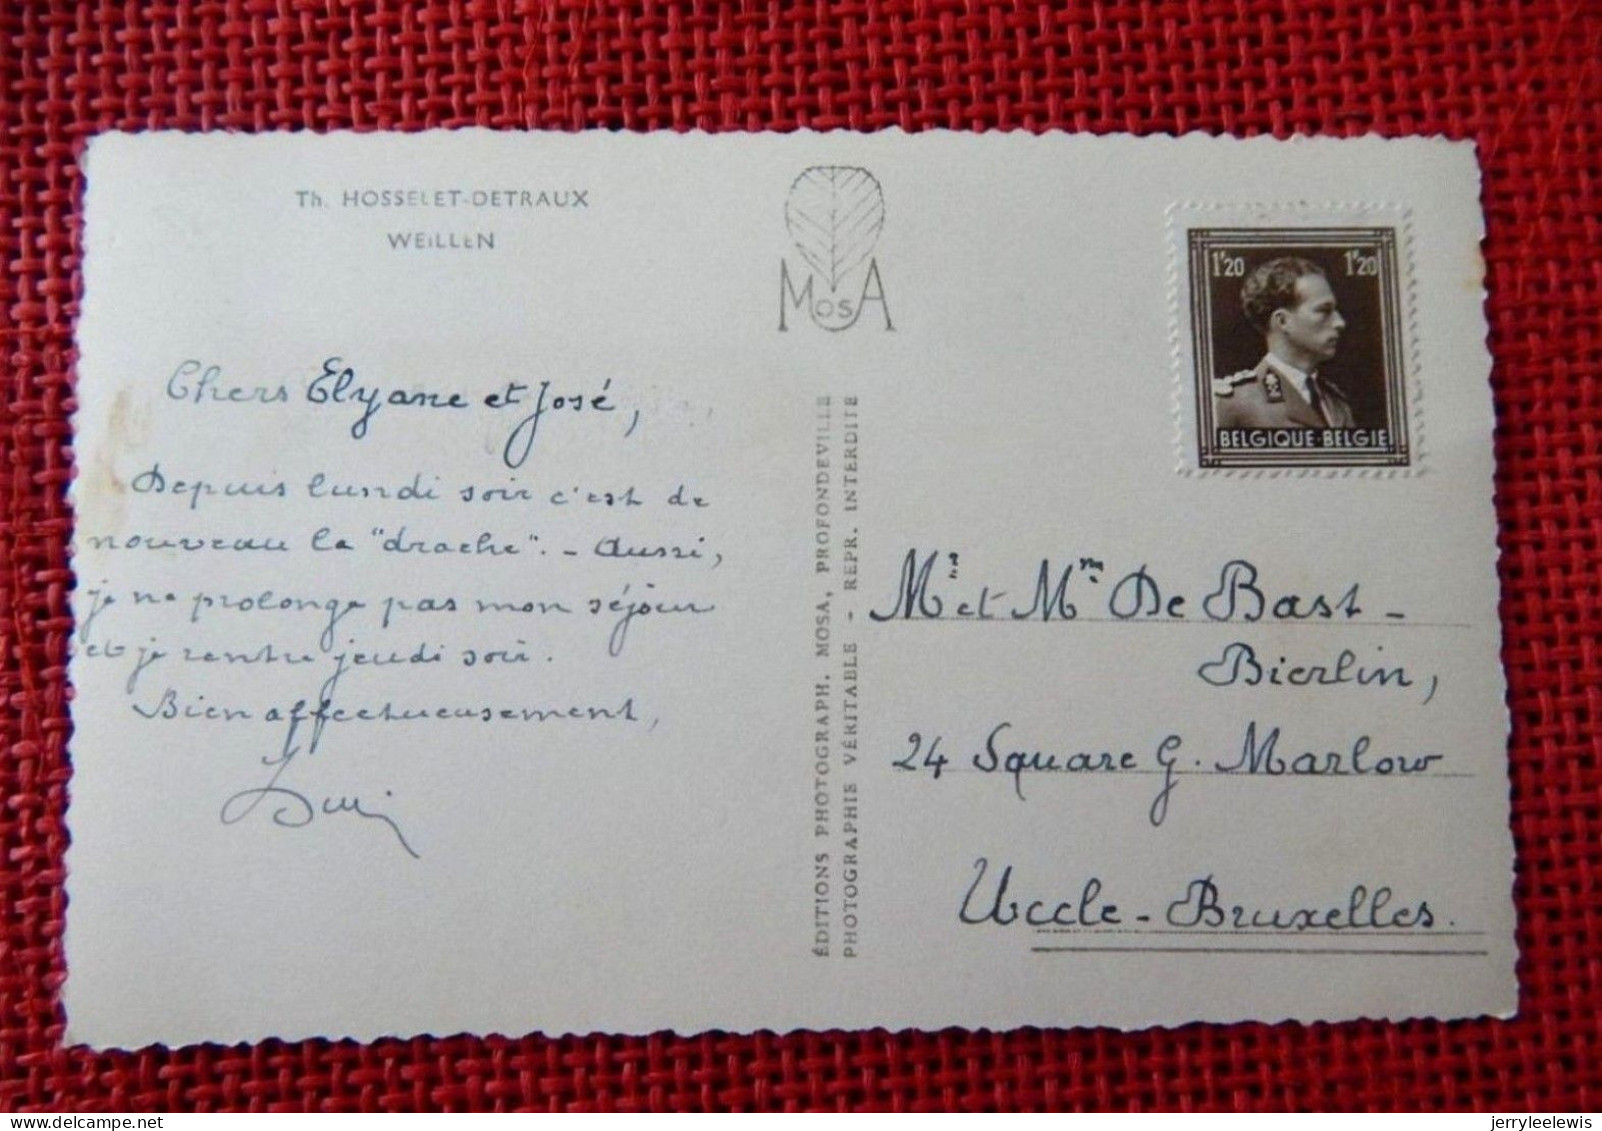 Th. HOSSELET-DETRAUX
WEILLEN
MOSA
1F20 1F20
BELGIQUE·BELGIE
Chers Elyane et José,
Depuis lundi soir c'est de
nouveau la "drache". - Aussi,
je ne prolonge pas mon séjour
et je rentre jeudi soir.
Bien affectueusement,
ÉDITIONS PHOTOGRAPH. MOSA, PROFONDEVILLE
PHOTOGRAPHIE VÉRITABLE - REPR. INTERDITE
Mr et Mm De Bast -
Bierlin,
24 Square G. Marlow
Uccle - Bruxelles.
jerryleelewis